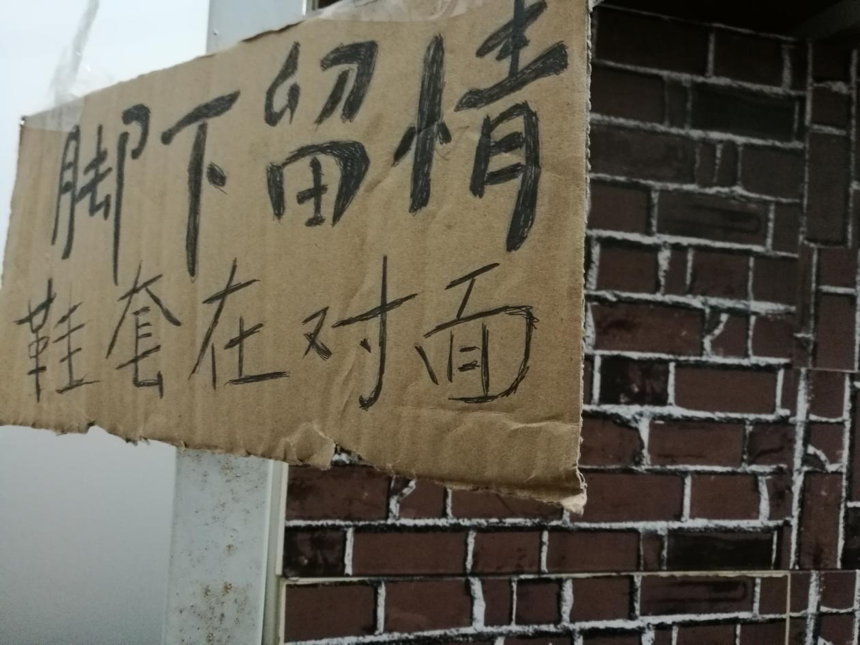 脚下留情
鞋套在对面